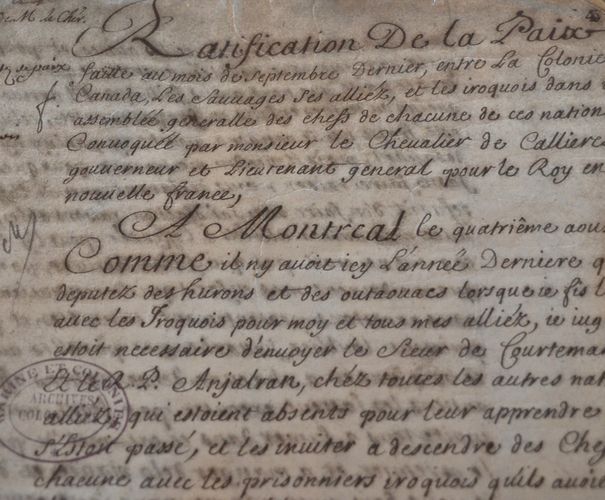 de M. le Chev.
Ratification De la Paix
faitte au mois de septembre Dernier, entre La Colonie
Canada, Les Sauvages Ses alliéz, et les iroquois dans
assemblée generalle des chefs de chacune de ces nation
Convoquéé par monsieur le Chevalier de Callieres
gouuerneur et Lieutenant general pour le Roy en
nouuelle france,
A Montreal le quatriême aou
Comme il ny auoit icy L'année Derniere q
deputez des hurons et des outaouacs lorsque ie fis l
auec les Iroquois pour moy et tous mes alliéz, ie iug
estoit necessaire d'enuoyer le Sieur de Courtema
Et le R. P. Anjalran, chéz toutes les autres nat
alliéz, qui estoient absents pour leur apprendre
s'Estoit passé, et les inuiter a descendre des Che
chacune auec les prisonniers iroquois quils auoie
MARINE ET COLONIES
ARCHIVES